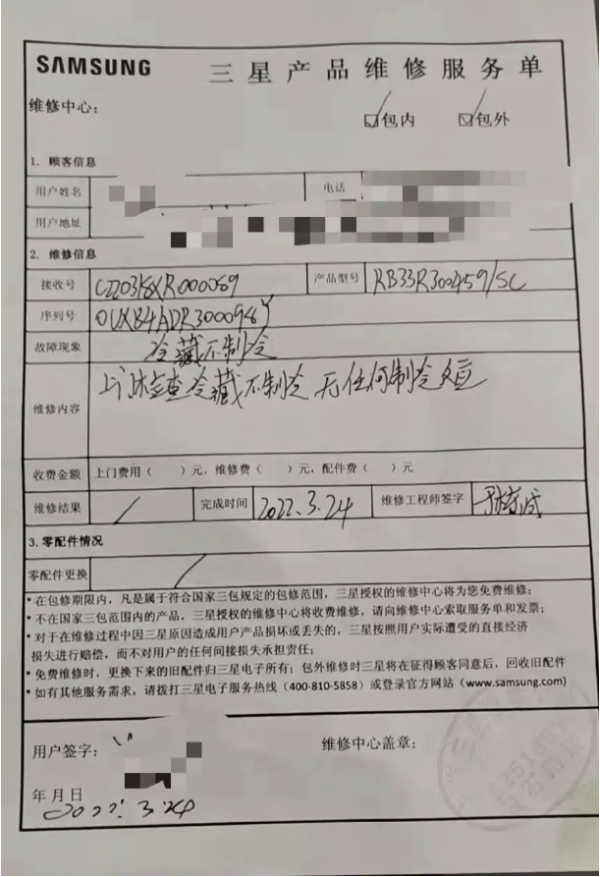 SAMSUNG 三星产品维修服务单
维修中心:
☑包内 ☑包外
1. 顾客信息
用户姓名 电话
用户地址
2. 维修信息
接收号 产品型号 RB33R300459/SC
序列号
故障现象 冷藏不制冷
维修内容 上门检查冷藏不制冷 无任何制冷效应
收费金额 上门费用( )元, 维修费( )元, 配件费( )元
维修结果 / 完成时间 2022.3.24 维修工程师签字
3.零配件情况
零配件更换 /
• 在包修期限内, 凡是属于符合国家三包规定的包修范围, 三星授权的维修中心将为您免费维修;
• 不在国家三包范围内的产品, 三星授权的维修中心将收费维修, 请向维修中心索取服务单和发票;
• 对于在维修过程中因三星原因造成用户产品损坏或丢失的, 三星按照用户实际遭受的直接经济
损失进行赔偿, 而不对用户的任何间接损失承担责任;
• 免费维修时, 更换下来的旧配件归三星电子所有; 包外维修时三星将在征得顾客同意后, 回收旧配件
• 如有其他服务需求, 请拨打三星电子服务热线 (400-810-5858) 或登录官方网站 (www.samsung.com)
用户签字: 维修中心盖章:
年月日
2022.3.24